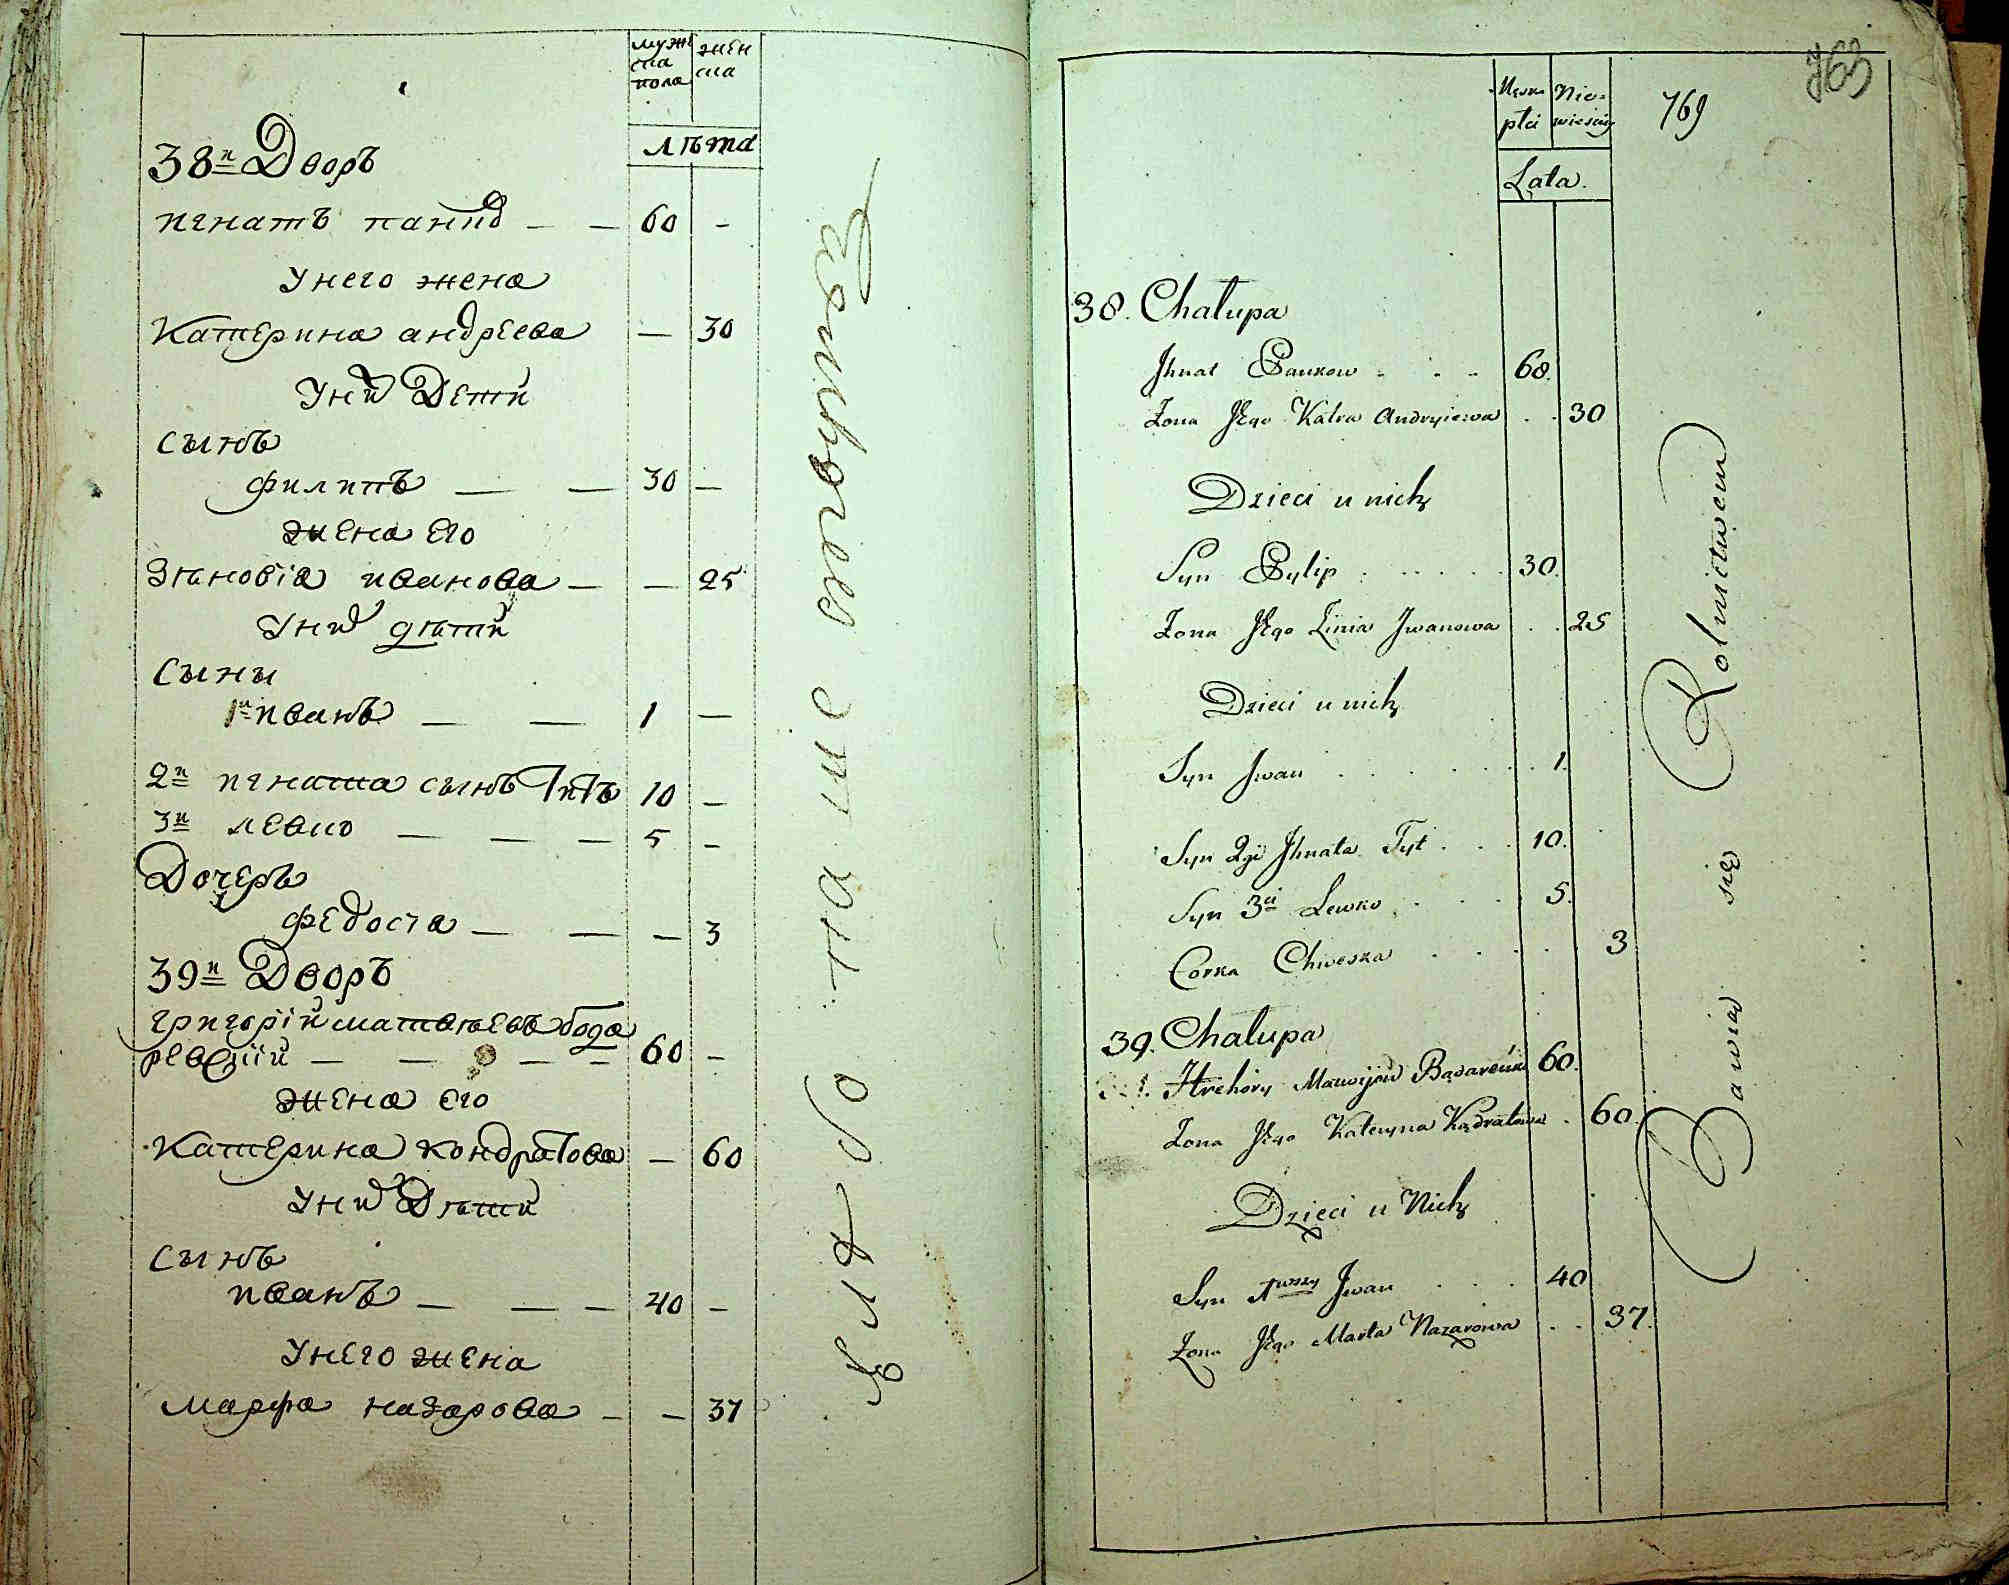 мужеска пола
женска
лѣта
38й Дворъ
игнатъ панко — — 60 -
У него жена
Катерина андреева — 30
У них Дети
Сынъ
филипъ — — 30 —
жена его
Зѣновія иванова — — 25
У них дѣти
Сыны
1й иванъ — — 1 —
2й игната сынъ титъ 10 —
3й левко — — — 5 -
Дочеръ
федося — — — 3
39й Дворъ
григорій матвѣевъ бода
ревскій — — — — 60 -
жена его
Катерина кондратова — 60
У них Дѣти
Сынъ
иванъ — — — 40 -
У него жена
марфа назарова — — 37
Męzka płci
Niewiesciy
Lata.
769
763
38. Chałupa
Jhnat Pankow . . . 60.
Zona Jego Katra Andryiewa . . 30
Dzieci u nich
Syn Pylip . . . . . 30.
Zona Jego Zinia Jwanowa . . 25
Dzieci u nich
Syn Jwan . . . . . . 1.
Syn 2gi Jhnata Tyt . . . 10.
Syn 3ci Lewko . . . . 5.
Corka Chweska . . . . . 3
39. Chałupa
Hrehory Matwijow 60.
Zona Jego Kateryna Kądratowa . 60.
Dzieci u Nich
Syn 1wszy Jwan . . . 40
Zona Jego Marta Nazarowa . . 37.
Bawia się Rolnictwem